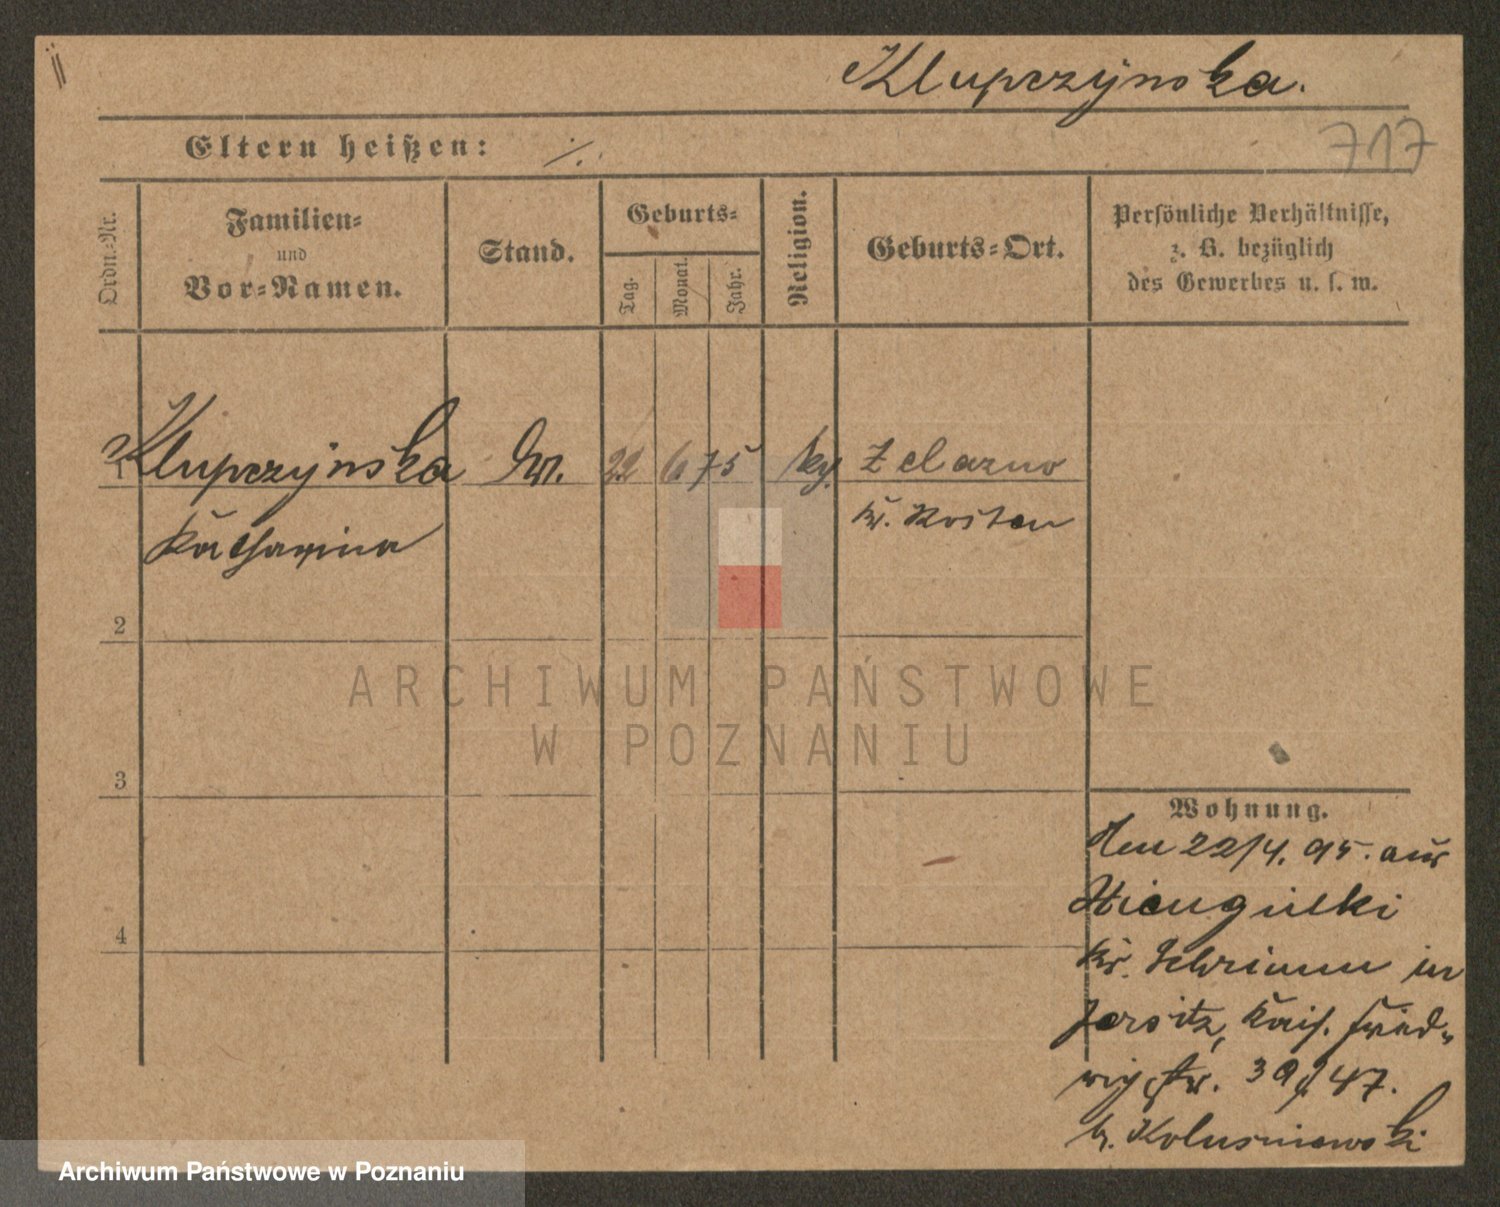 Klupczynska.
717
Eltern heißen: ./.
Ordn.-Nr.
Familien-
und
Vor-Namen.
Stand.
Geburts-
Tag.
Monat.
Jahr.
Religion.
Geburts-Ort.
Persönliche Verhältnisse,
z. B. bezüglich
des Gewerbes u. s. w.
1 Klupczynska 22 6 75 Zelazno
Katharina Kr. Kosten
2
ARCHIWUM PAŃSTWOWE
W POZNANIU
3
Wohnung.
22/4. 95. aus
4
Kr. Schrimm in
Jersitz, Kais. Fried-
rich str. 39/47.
b. Kolusniewski
Archiwum Państwowe w Poznaniu